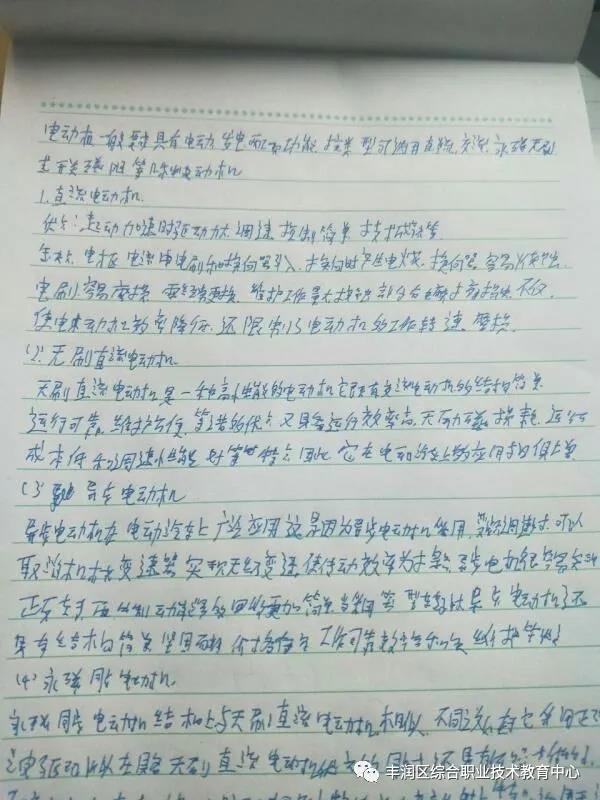 电动机一般要求具有电动、发电两项功能,按类型可满用直流、交流、永磁无刷
或开关磁阻等几种电动机
1.直流电动机
优点:起动加速时驱动力大,调速控制简单,技术成熟等
缺点:电枢电流由电刷和换向器引入,换向时产生电火花,换向器容易烧蚀,
电刷容易磨损,需经常更换,维护工作量大接触部分存在磨损,不仅
使电动机效率降低,还限制了电动机的工作转速
(2)无刷直流电动机
无刷直流电动机是一种高性能的电动机它既有交流电动机的结构简单
运行可靠,维护方便等诸多优点又具备运行效率高,无励磁损耗,运行
成本低和调速性能好等特点因此它在电动汽车上的应用与日俱增
(3)异步电动机
异步电动机在电动汽车上广泛应用这是因为异步电动机采用变频调速时,可以
取消机械变速器实现无级变速,使传动效率大为提高,异步电机很容易实现
正反转,再生制动能量的回收更加简单当采用笼型转子时异步电动机还
具有结构简单坚固耐用价格便宜工作可靠效率高和免维护等优点
(4)永磁同步电动机
永磁同步电动机结构上与无刷直流电动机相似,不同之处在它采用正弦
波电驱动所以在具备无刷直流电动机优点的同时,还具有
丰润区综合职业技术教育中心